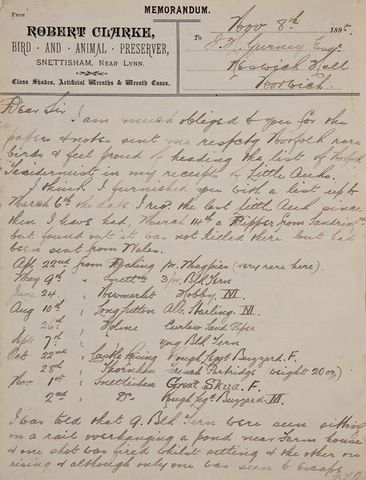 MEMORANDUM.
From
ROBERT CLARKE,
BIRD · AND · ANIMAL · PRESERVER,
SNETTISHAM, NEAR LYNN.
Glass Shades, Artificial Wreaths & Wreath Cases.
Nov 8th 1895.
To J. H. Gurney Esq.
Keswick Hall
Norwich.
Dear Sir
I am much obliged to you for the
papers & notes sent me respctg Norfolk rare
birds & feel proud of heading the list of Norfolk
Taxidermist in my receipts of Little Auks.
I think I furnished you with a list up to
March 6th the date I recd the last little Auk since
then I have had, March 14th a from Sandringham
but found out it was not killed there but had
been sent from Wales.
Apl 22nd from pr. Magpies (very rare here).
May 9th " Snettm 3/pr. Blk Tern
June 24, " Newmarket Hobby M.
Aug 10th " Long Sutton Ad. Starling. M.
" 26th " Holme Curlew Sand Piper
Sept 7th " " yng Blk Tern
Oct 22nd " Castle Rising Rough legged Buzzard. F.
" 28th " Thornham French Partridge (weight 20 oz)
Nov 1st " Snettisham Great Skua. F.
" 2nd " Do Rough legd Buzzard. M
I was told that 2. Blk Tern were seen sitting
on a rail overhanging a pond near Farm house
& one shot was fired whilst sitting & the other on
rising & although only one was seen to escape